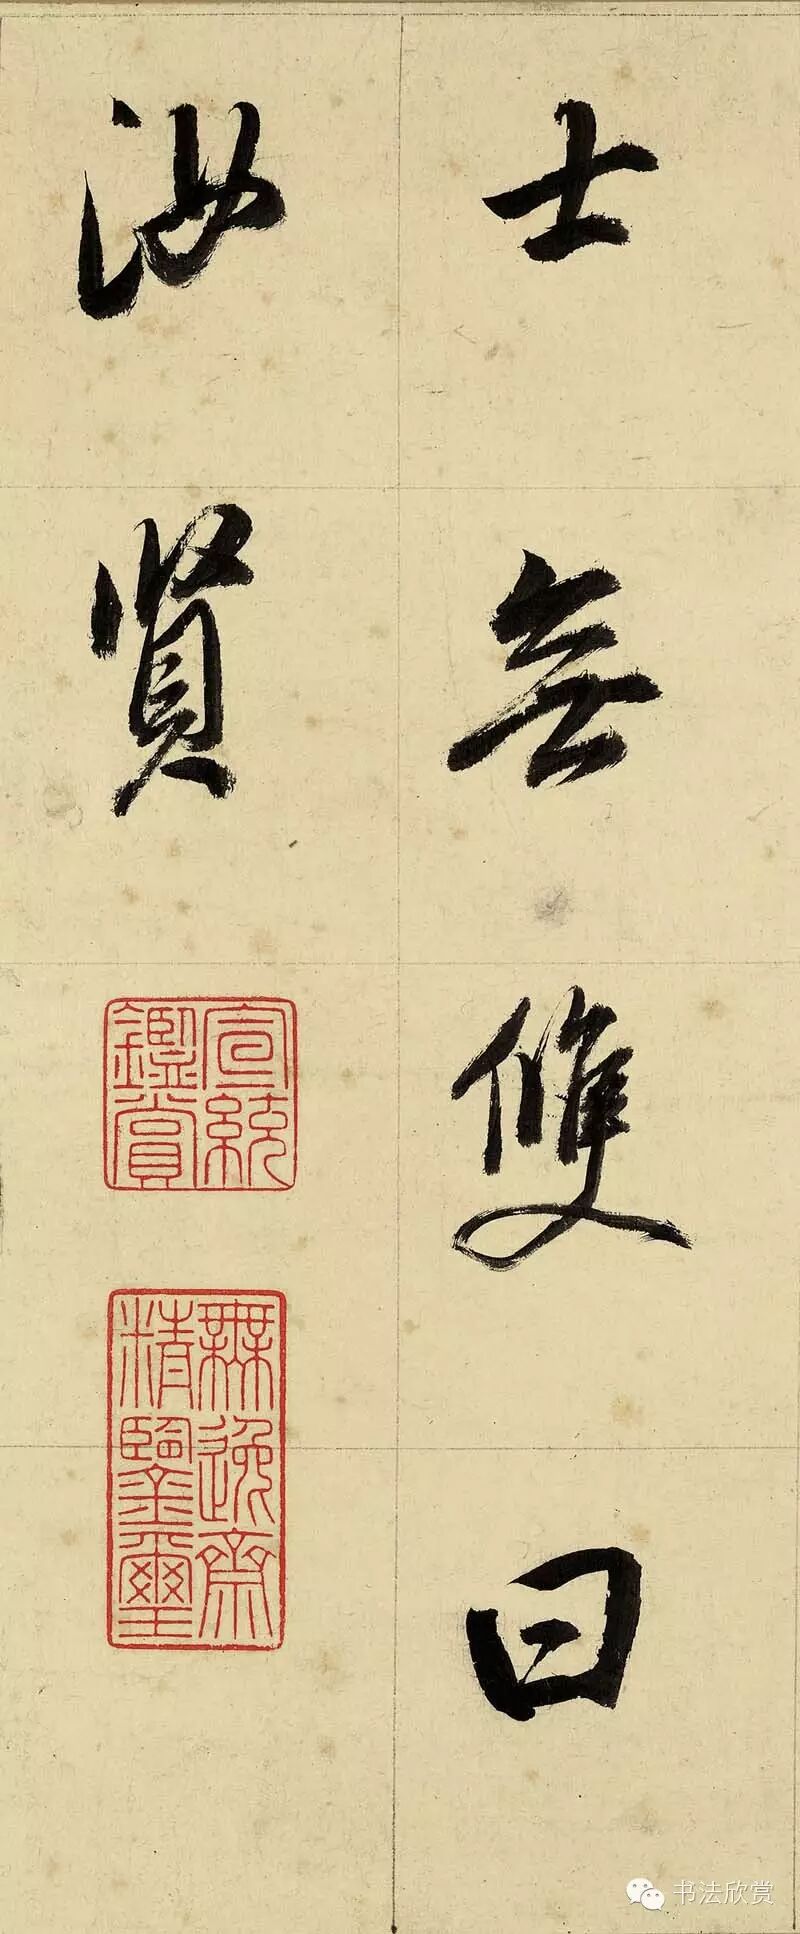 士無雙曰
汝賢
宣統鑑賞
無逸齋精鑒璽
书法欣赏